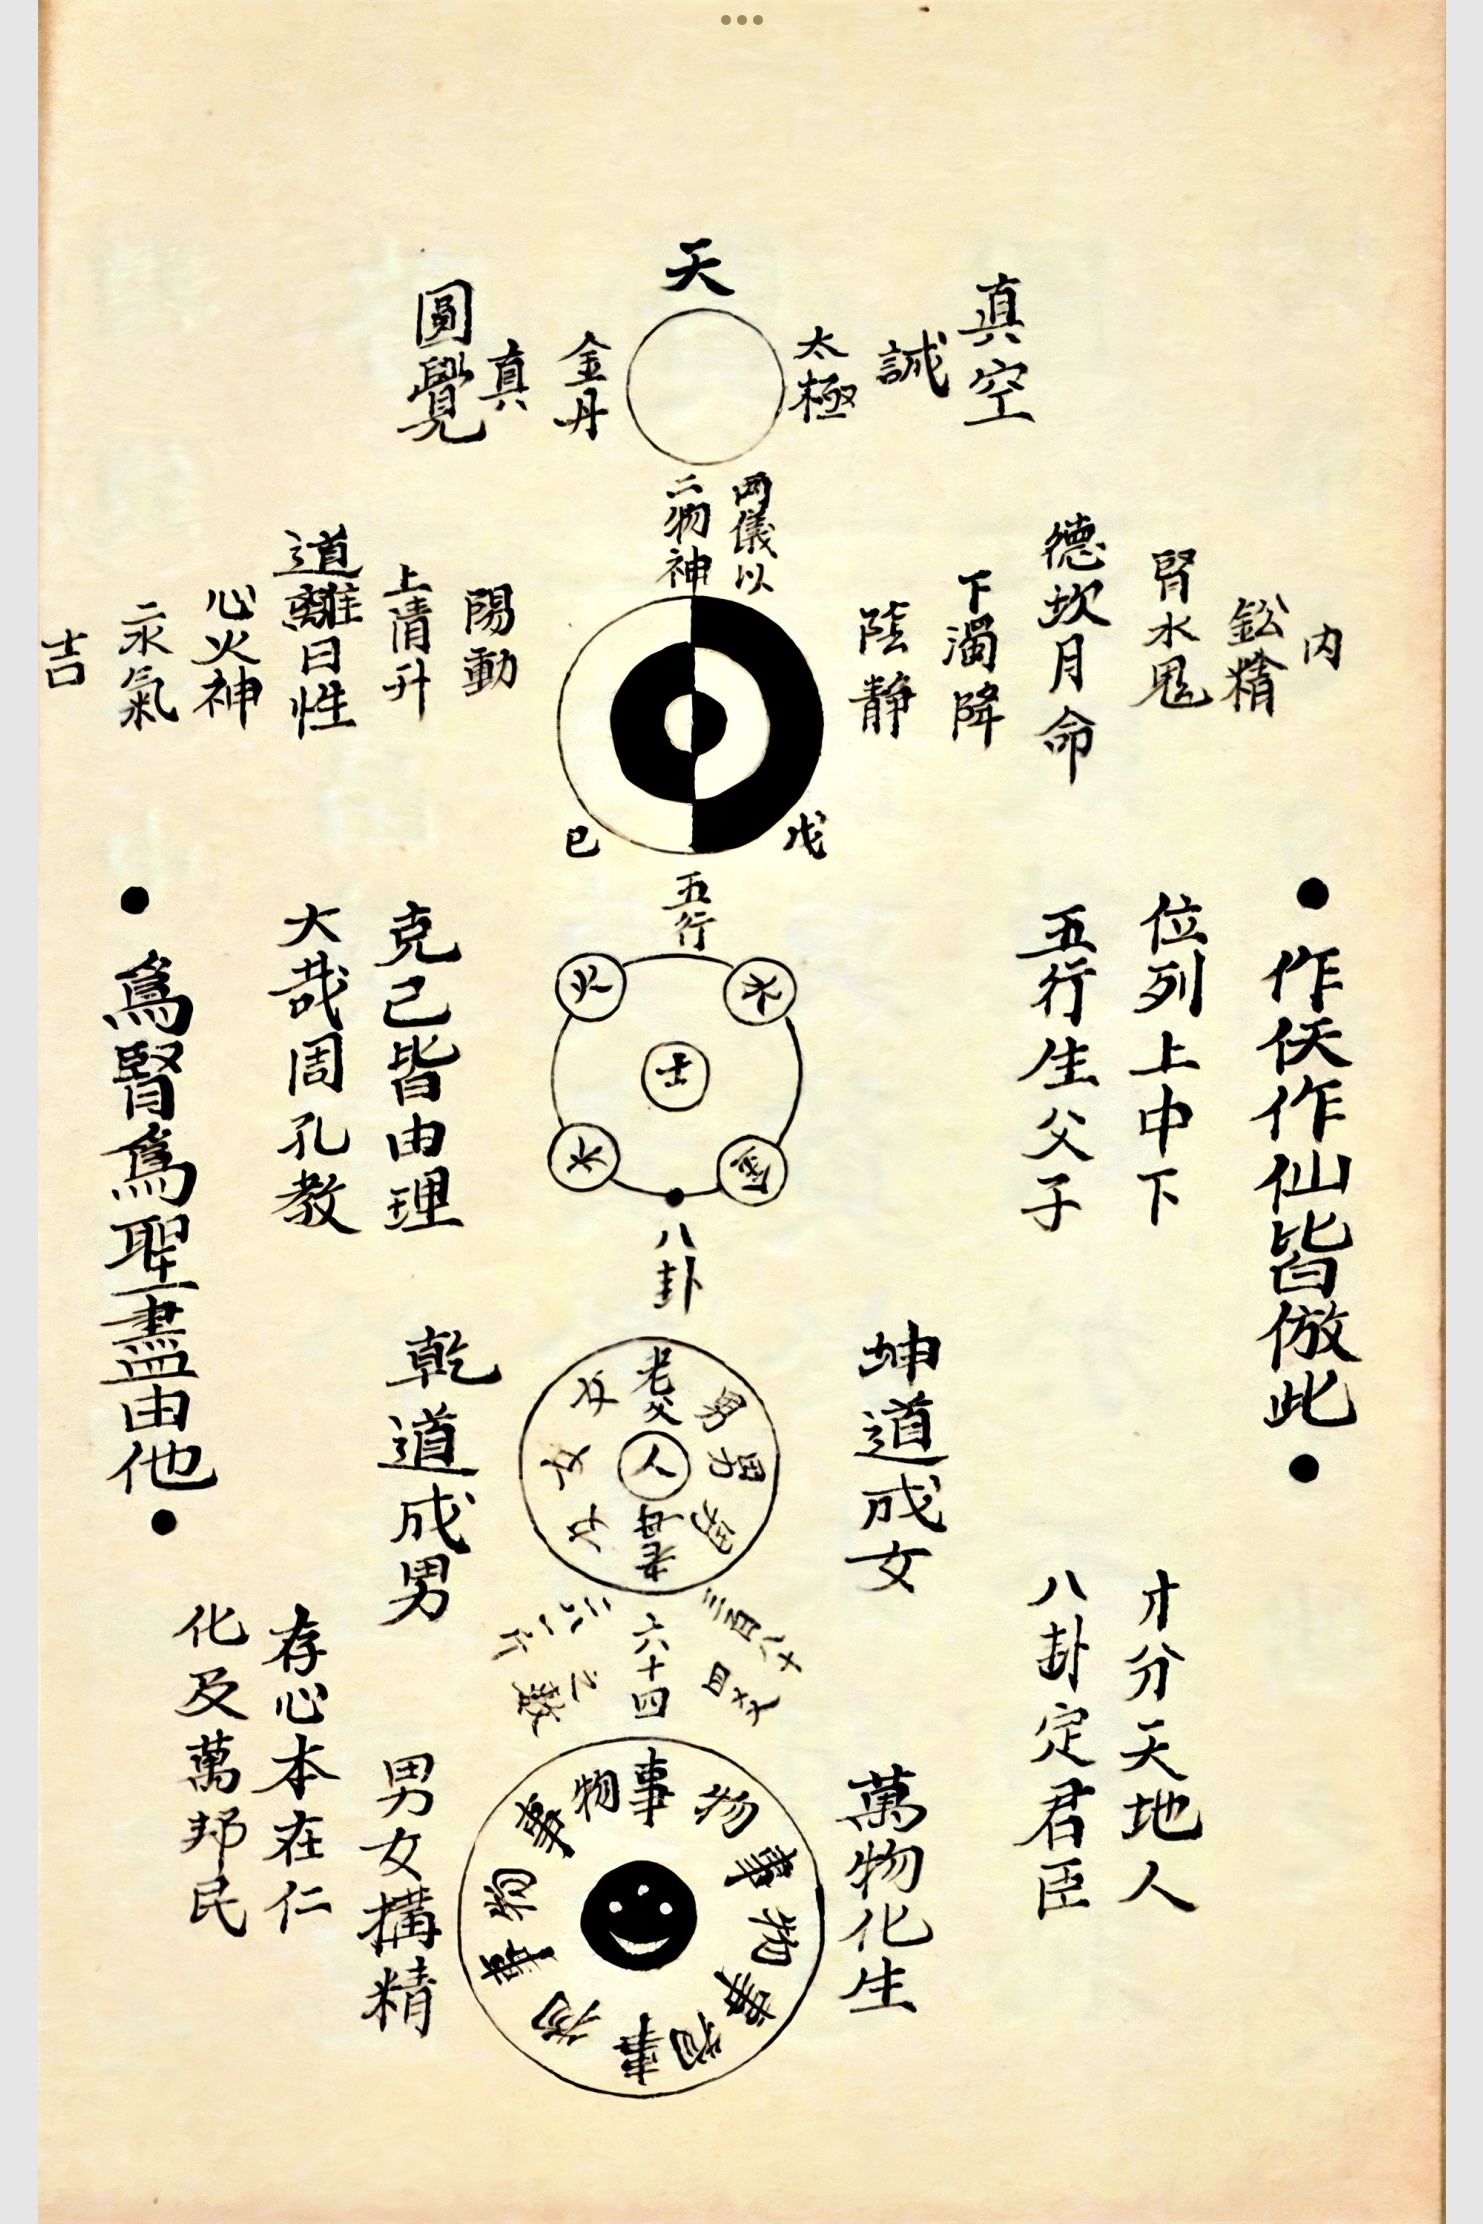 天
真空
誠
太極
金丹
真
圓覺
兩儀以
二物神
内
鈆精
腎水鬼
德坎月命
下濁降
陰靜
陽動
上清升
道離日性
心火神
汞氣
吉
戊
已
五行
火
水
土
木
金
●作仸作仙皆倣此●
位列上中下
五行生父子
克己皆由理
大哉周孔教
●爲賢爲聖盡由他●
八卦
坤道成女
乾道成男
老父
男
男
男
老母
女
女
女
人
六十四
三百八十
四爻
之數
才分天地人
八卦定君臣
萬物化生
男女搆精
存心本在仁
化及萬邦民
事
物
事
物
事
物
事
物
事
物
事
物